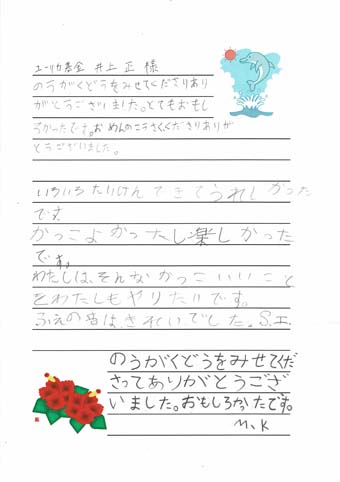 ユーリカ基金 井上 正 様
のうがくどうをみせてくださりあり
がとうございました。とてもおもし
ろかったです。おめんのこうさくくださりありが
とうございました。
いろいろたいけんできてうれしかった
です。
かっこよかったし楽しかった
です。
わたしは、そんなかっこいいこと
をわたしもやりたいです。
ふえの音は、きれいでした。S.I.
のうがくどうをみせてくだ
さってありがとうござ
いました。おもしろかったです。
M.K